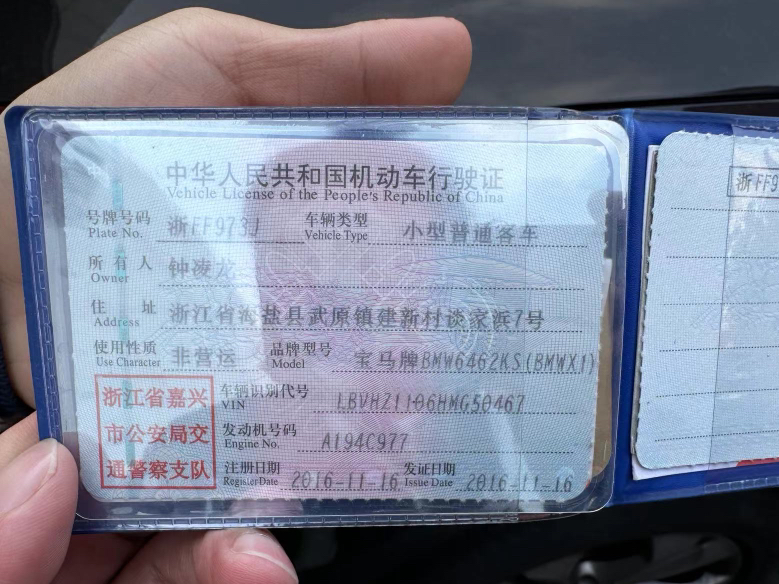 中华人民共和国机动车行驶证
Vehicle License of the People's Republic of China
号牌号码 浙FF973J 车辆类型 小型普通客车
Plate No. Vehicle Type
所有人 钟凌龙
Owner
住址 浙江省海盐县武原镇建新村谈家浜7号
Address
使用性质 非营运 品牌型号 宝马牌BMW6462KS(BMWX1)
Use Character Model
浙江省嘉兴
市公安局交
通警察支队
车辆识别代号 LBVHZ1106HMG50467
VIN
发动机号码 A194C977
Engine No.
注册日期 2016-11-16 发证日期 2016-11-16
Register Date Issue Date
浙FF9